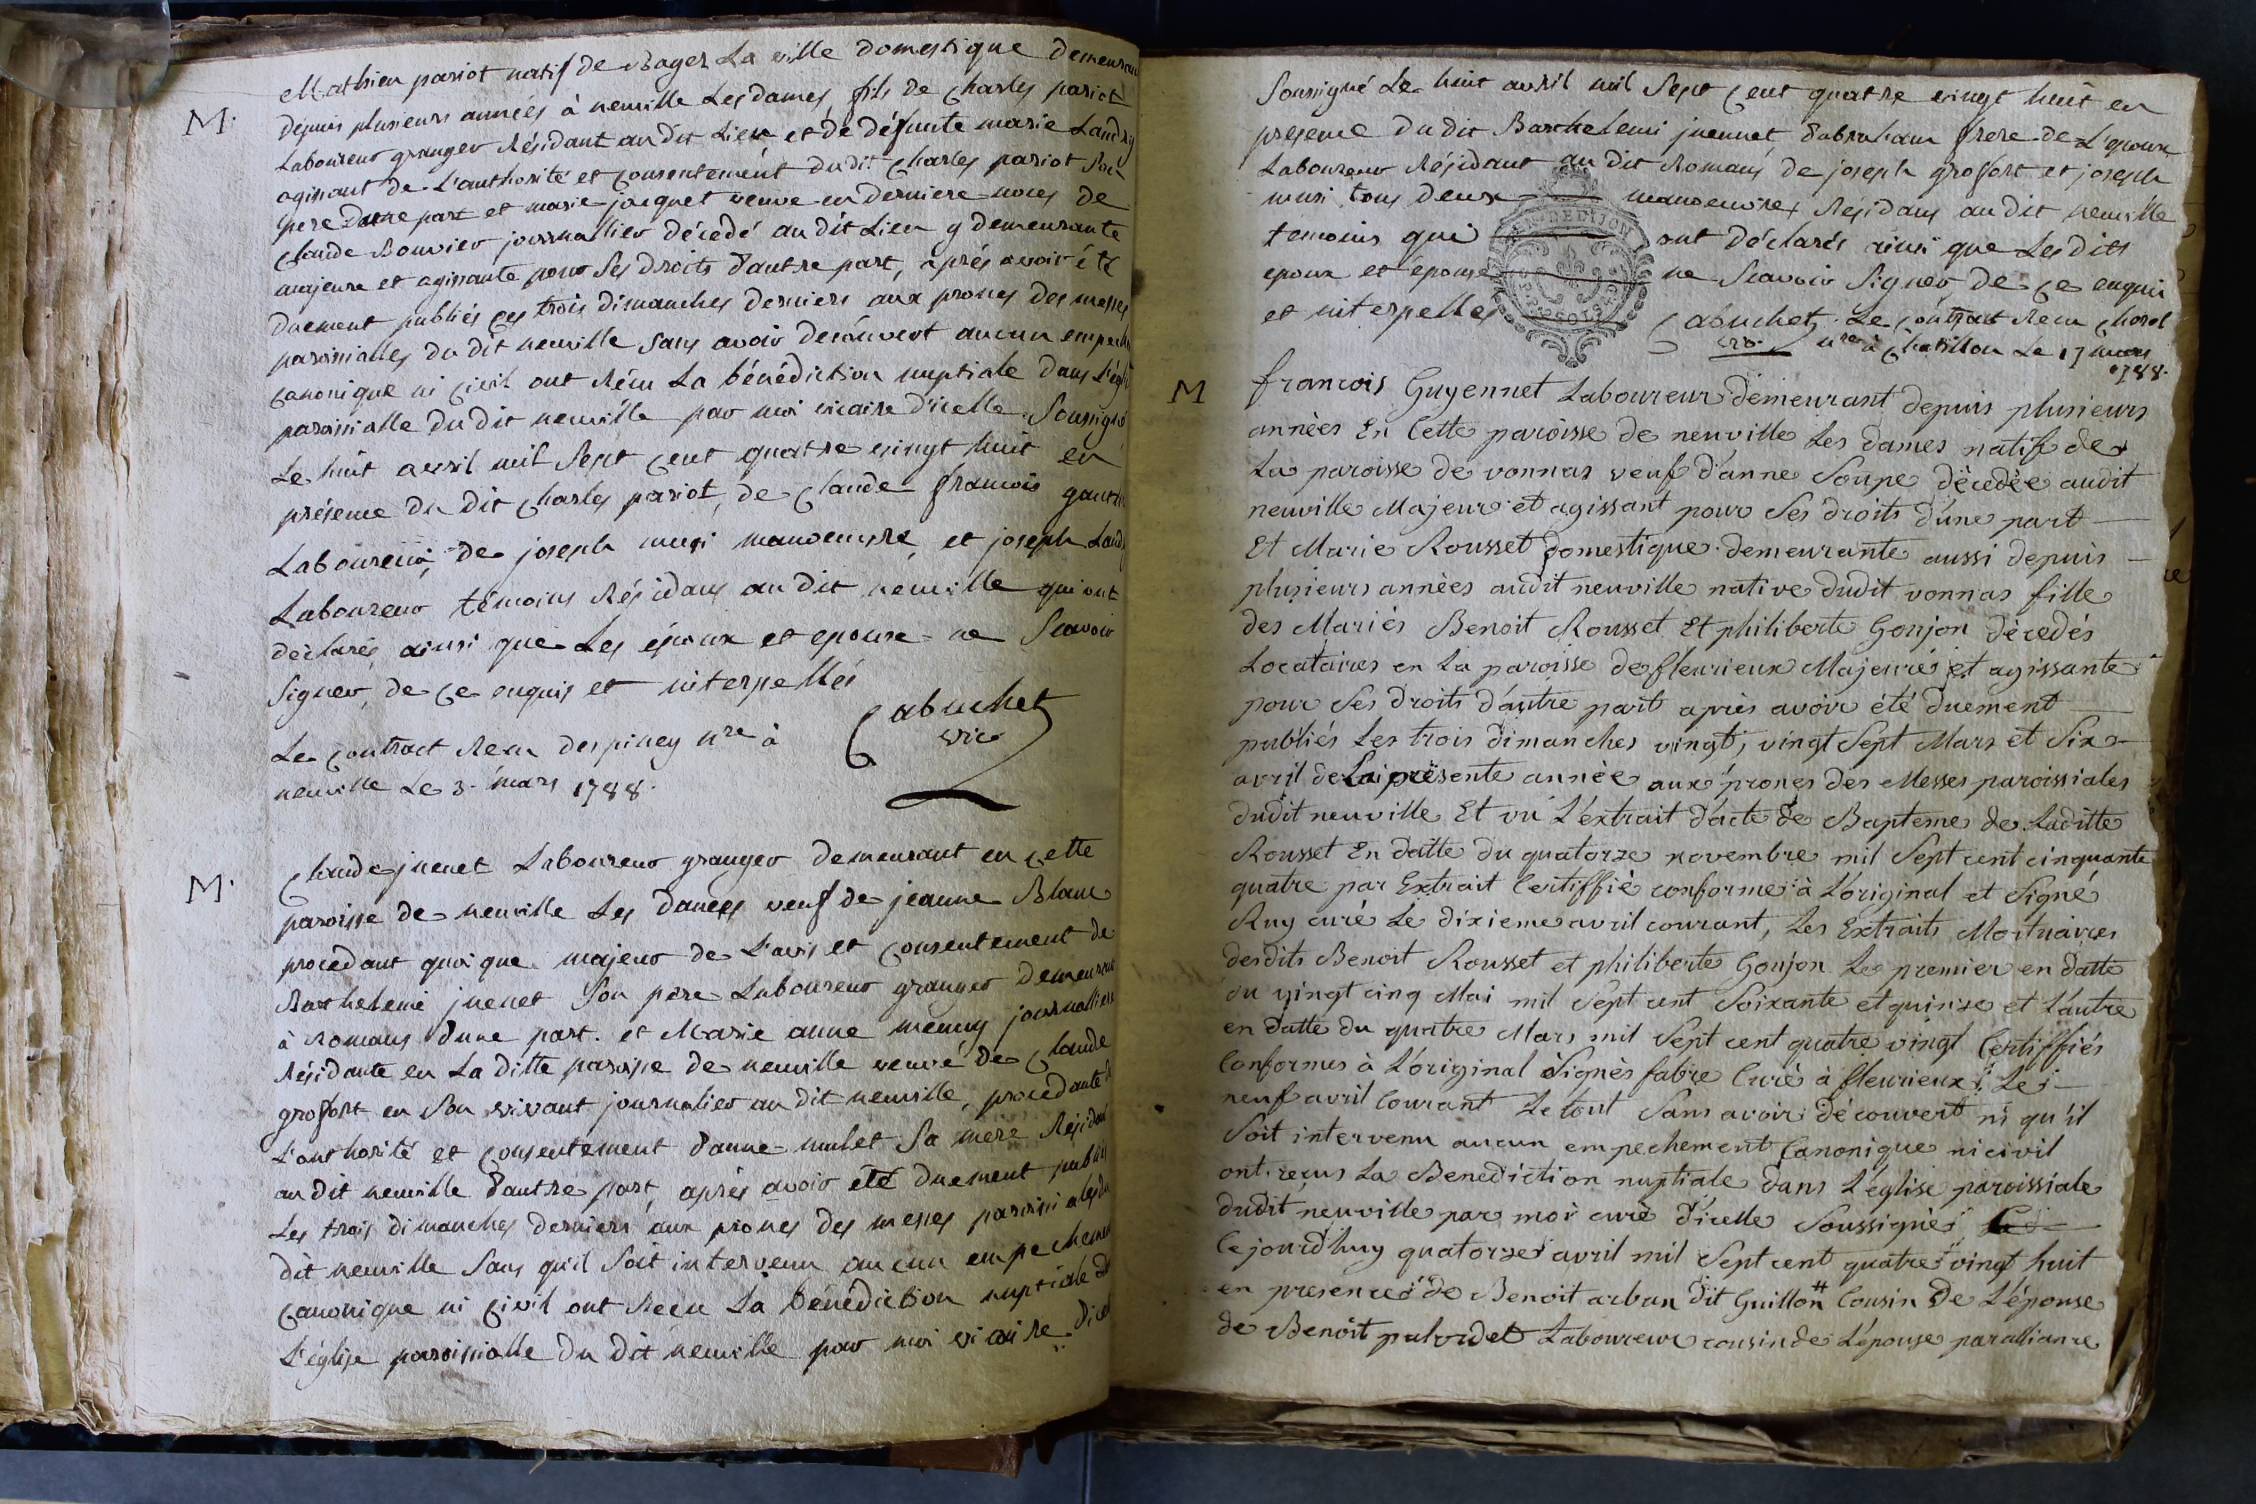 M.
Mathieu pariot natif de Bagez La ville domestique demeurant
depuis plusieurs années à neuville Les dames, fils de Charles pariot
Laboureur granger Résidant au dit Lieu et de défunte marie Landry
agissant de L'authorité et consentement du dit Charles pariot Son
pere d'une part et marie jacquet veuve en derniere noces de
Claude Bouvier journallier décédé au dit Lieu y demeurante
majeure et agissante pour Ses droits d'autre part, après avoir été
duement publiés ces trois dimanches derniers aux prones des messes
paroissialles du dit neuville Sans avoir decouvert aucun empech
canonique ni civil ont Réçu La bénédiction nuptiale dans L'égli
paroissialle du dit neuville par moi vicaire d'icelle Soussigné
Le huit avril mil Sept cent quatre vingt huit en
présence du dit Charles pariot, de Claude françois
Laboureur, de joseph musi manoeuvre et joseph Land
Laboureur témoins Résidans au dit neuville qui ont
déclarés ainsi que Les époux et epouse ne Scavoir
Signer, de ce enquis et interpellés
Cabuchet
vic
Le contract Recu despiney nre à
neuville Le 3. mars 1788.
M.
Claude juenet Laboureur granger demeurant en cette
paroisse de neuville Les dames veuf de jeanne Blanc
procedant quoique majeur de L'avis et consentement de
Barthelemi juenet Son père Laboureur granger demeurant
à Romans d'une part. et Marie anne menuy journalliere
Résidante en La ditte paroisse de neuville veuve de Claude
grosfort en Son vivant journalier au dit neuville, procedante de
L'authorité et consentement d'anne mulet Sa mere Résidant
au dit neuville d'autre part, après avoir eté duement publiés
Les trois dimanches derniers aux prones des messes paroissiales du
dit neuville Sans qu'il Soit intervenu aucun empechement
canonique ni civil ont Recu La bénédiction nuptiale
L'église paroissialle du dit neuville par moi vicaire d'icel
Soussigné Le huit avril mil Sept cent quatre vingt huit en
presence du dit Barthelemi juennet d'abraham frere de L'epoux
Laboureur Résidant au dit Romans de joseph grosfort et joseph
musi tous deux manoeuvres Residans au dit neuville
temoins qui ont déclarés ainsi que Les dits
epoux et epouse ne Scavoir Signer de ce enquis
et interpelles
Cabuchet. Le contract Recu Chorel
vic. nre à Chatillon Le 17 mars
1788.
M
francois Guyennet Laboureur demeurant depuis plusieurs
années En Cette paroisse de neuville Les dames natif de
La paroisse de vonnas veuf d'anne Soupe décédée audit
neuville Majeur et agissant pour Ses droits d'une part
Et Marie Rousset domestique demeurante aussi depuis
plusieurs années audit neuville native dudit vonnas fille
des Mariés Benoit Rousset Et philiberte Goujon décedés
Locataires en La paroisse de fleurieux Majeure et agissante
pour Ses droits d'autre part après avoir été duement
publiés Les trois dimanches vingt, vingt Sept Mars et Six
avril de La présente année aux prones des Messes paroissiales
dudit neuville Et vu L'extrait d'acte de Bapteme de Laditte
Rousset En datte du quatorze novembre mil Sept cent cinquante
quatre par Extrait Certiffié conforme à L'original et Signé
Ruy curé Le dixieme avril courant, Les Extraits Mortuaires
desdits Benoit Rousset et philiberte Goujon Le premier en datte
du vingt cinq Mai mil Sept cent Soixante et quinze et L'autre
en datte du quatre Mars mil Sept cent quatre vingt Certiffiés
Conformes à L'original Signés fabre Curé à fleurieux Le
neuf avril Courant Le tout Sans avoir découvert ni qu'il
Soit intervenu aucun empechement Canonique ni civil
ont reçus La Benediction nuptiale dans L'église paroissiale
dudit neuville par moi curé d'icelle Soussigné
Cejourd'huy quatorze avril mil Sept cent quatre vingt huit
en presence de Benoit arban dit Guillon # Cousin De L'épouse
de Benoît palvidet Laboureur cousin de L'épouse par alliance